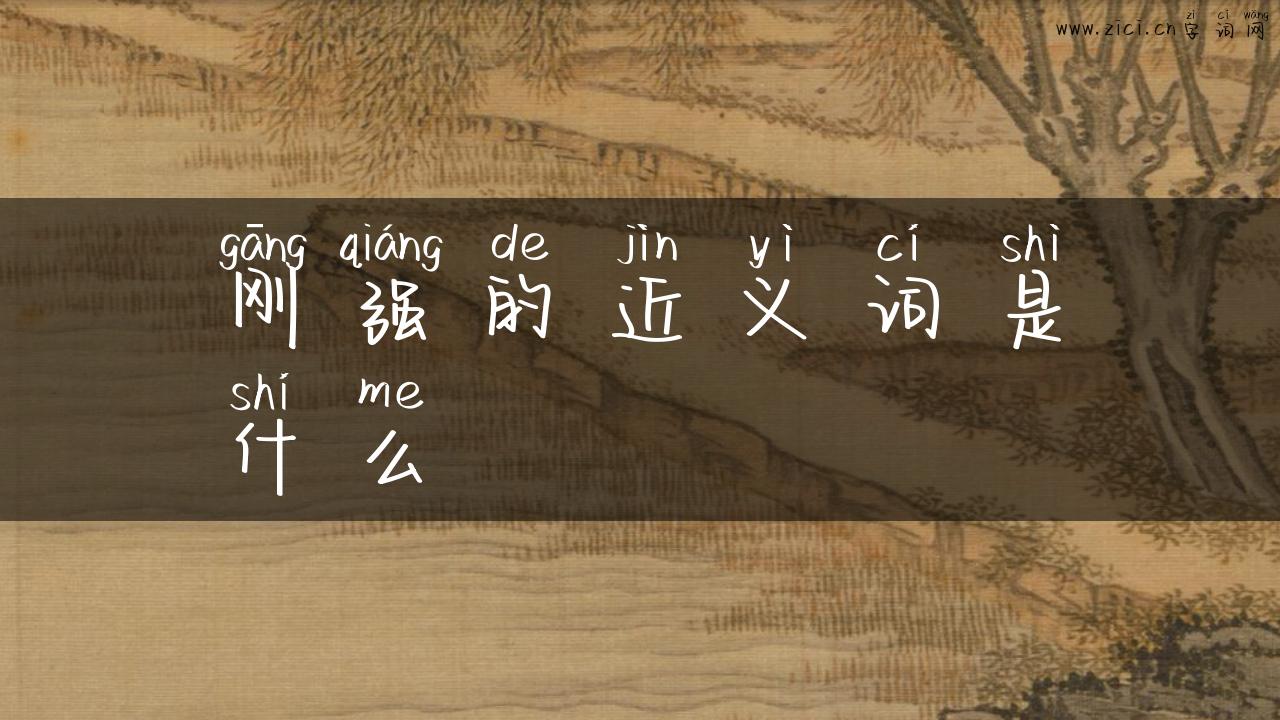 zì cí wǎng
www.zici.cn字词网
gāng qiáng de jìn yì cí shì
刚强的近义词是
shí me
什么